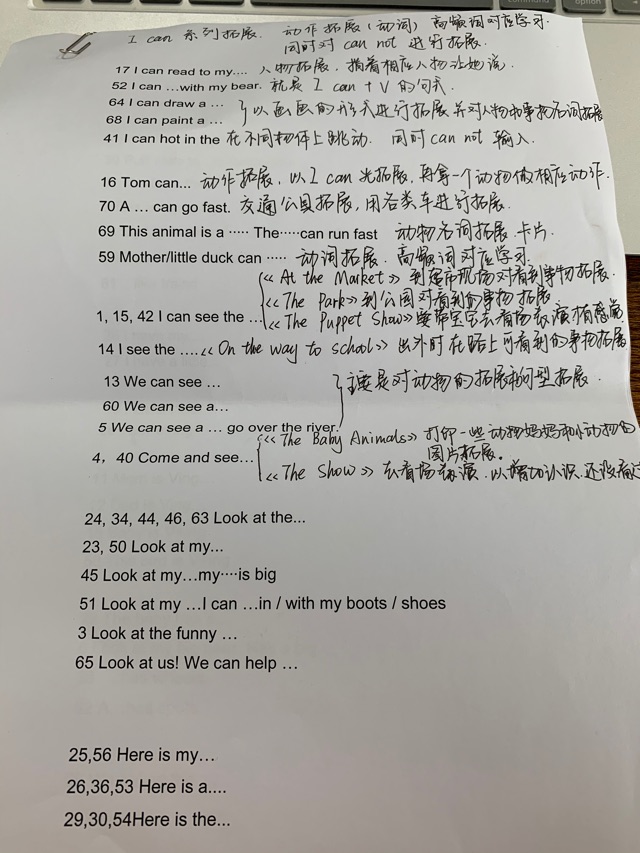 I can 系列拓展. 动作拓展(动词) 高频词对应学习.
同时对 can not 进行拓展.
17 I can read to my.... 人物拓展, 指着相应人物让她说.
52 I can …with my bear. 就是 I can + V 的句式
64 I can draw a …
68 I can paint a …
以画画的形式进行拓展并对人物和事物名词拓展
41 I can hot in the 在不同物体上跳动. 同时 can not 输入.
16 Tom can... 动作拓展, 以 I can 先拓展, 再拿一个动物做相应动作.
70 A … can go fast. 交通公具拓展, 用各类车进行拓展.
69 This animal is a ····· The·····can run fast 动物名词拓展. 卡片
59 Mother/little duck can ····· 动词拓展. 高频词对应学习.
《At the Market》到超市现场对看到事物拓展.
《The Park》到公园对看到的事物拓展
1, 15, 42 I can see the … 《The Puppet Show》要带宝宝去看场表演才有感觉
14 I see the …. 《On the way to school》出外时在路上可看到的事物拓展
13 We can see …
60 We can see a…
5 We can see a … go over the river.
主要是对动物的拓展和句型拓展.
4, 40 Come and see…
《The Baby Animals》打印一些动物妈妈和小动物的
图片拓展.
《The Show》去看场表演, 以增加认识. 还没看过
24, 34, 44, 46, 63 Look at the...
23, 50 Look at my...
45 Look at my…my····is big
51 Look at my …I can …in / with my boots / shoes
3 Look at the funny …
65 Look at us! We can help …
25,56 Here is my…
26,36,53 Here is a....
29,30,54Here is the...